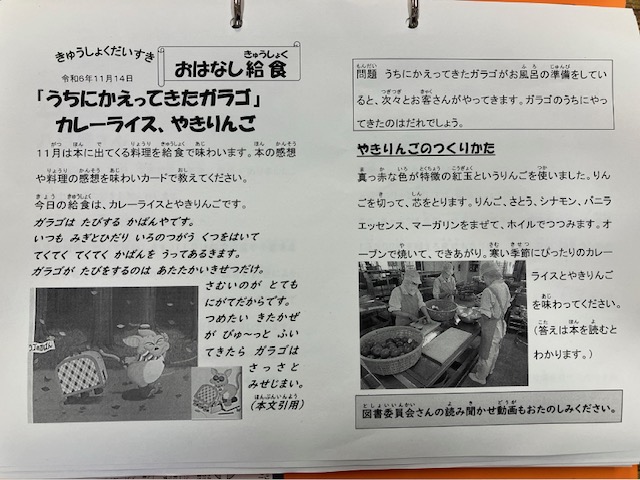 きゅうしょくだいすき
令和6年11月14日
おはなし給食
「うちにかえってきたガラゴ」
カレーライス、やきりんご
11月は本に出てくる料理を給食で味わいます。本の感想
や料理の感想を味わいカードで教えてください。
今日の給食は、カレーライスとやきりんごです。
ガラゴは たびする かばんやです。
いつも みぎとひだり いろのつがう くつをはいて
てくてく てくてく かばんを うってあるきます。
ガラゴが たびをするのは あたたかいきせつだけ。
さむいのが とても
にがてだからです。
つめたい きたかぜ
が ぴゅ～っと ふい
てきたら ガラゴは
さっさと
みせじまい。
(本文引用)
問題 うちにかえってきたガラゴがお風呂の準備をしてい
ると、次々とお客さんがやってきます。ガラゴのうちにやっ
てきたのはだれでしょう。
やきりんごのつくりかた
真っ赤な色が特徴の紅玉というりんごを使いました。りん
ごを切って、芯をとります。りんご、さとう、シナモン、バニラ
エッセンス、マーガリンをまぜて、ホイルでつつみます。オ
ーブンで焼いて、できあがり。寒い季節にぴったりのカレー
ライスとやきりんご
を味わってください。
(答えは本を読むと
わかります。)
図書委員会さんの読み聞かせ動画もおたのしみください。